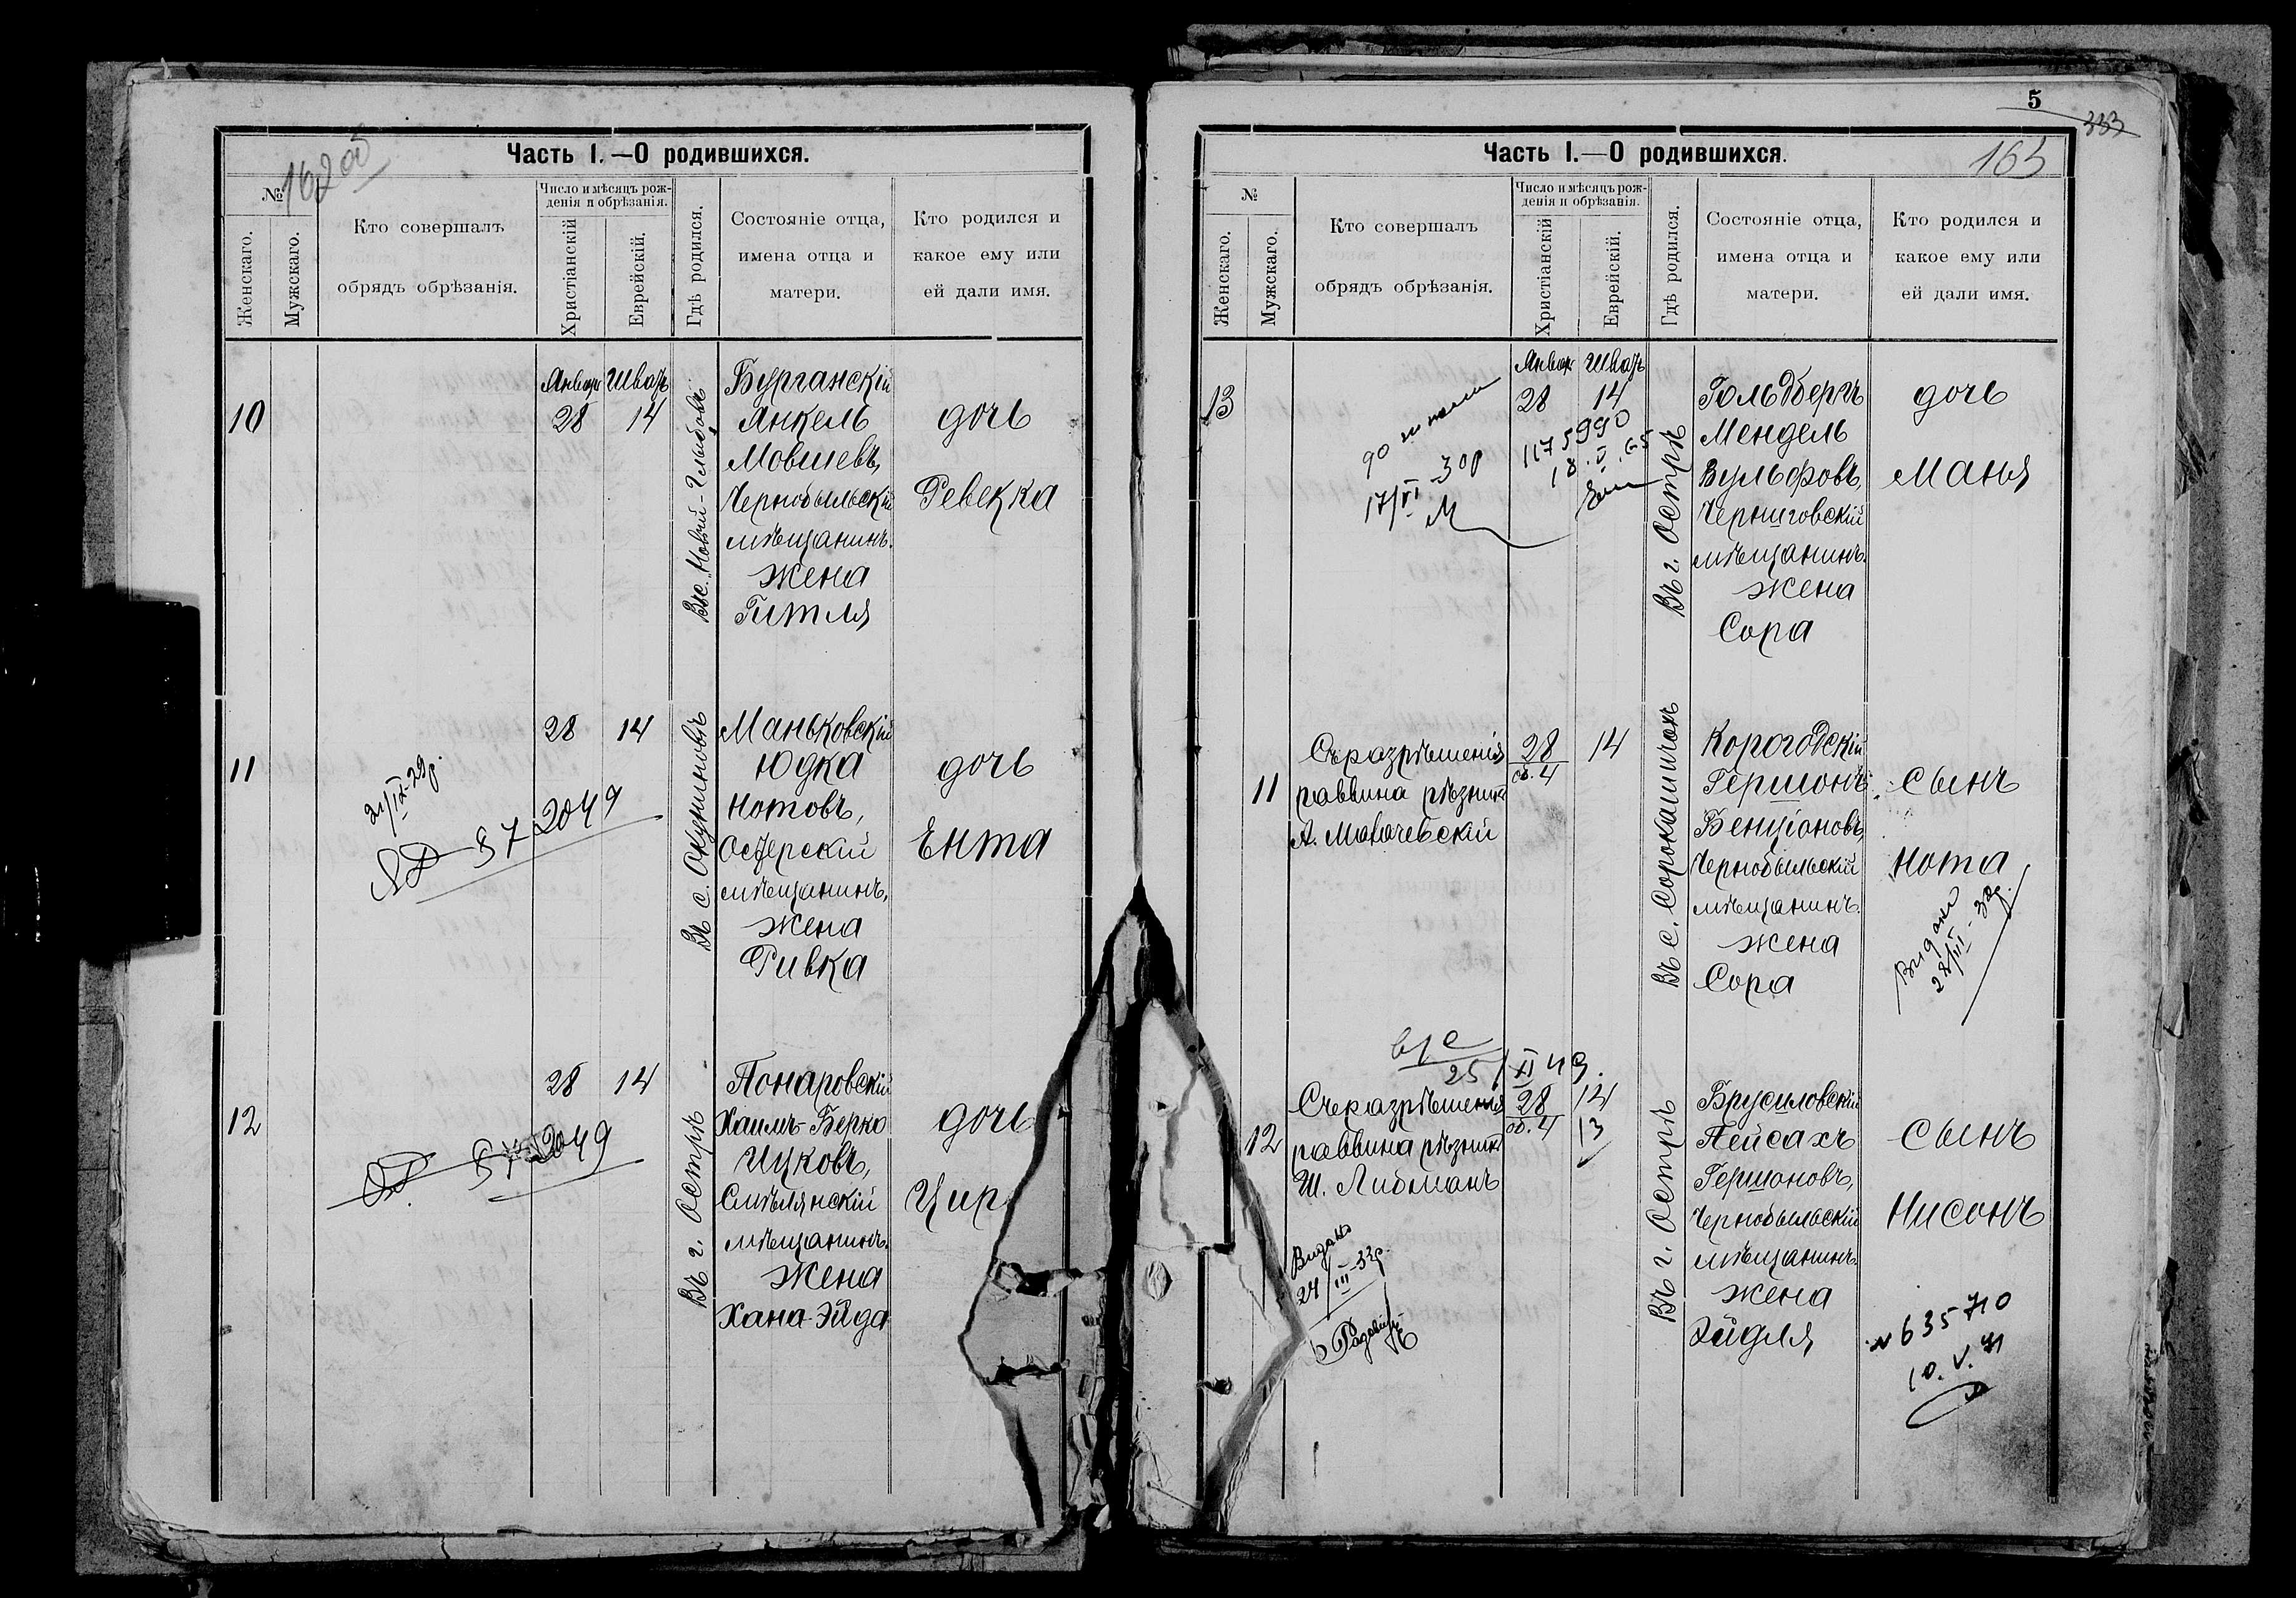 16200
Часть I.—О родившихся.
№
Женскаго.
Мужскаго.
Кто совершалъ
обрядъ обрѣзанія.
Число и мѣсяцъ рож-
денія и обрѣзанія.
Христіанскій
Еврейскій.
Гдѣ родился.
Состояніе отца,
имена отца и
матери.
Кто родился и
какое ему или
ей дали имя.
10
Январ Шватъ
28 14
Бурганскій
Янкель
Мовшевъ,
Чернобыльскій
мѣщанинъ.
Жена
Гитля
дочь
Ревекка
11
21/IX-29р.
57 2049
28 14
Въ с. Окуниновѣ
Маньковскій
Юдка
Нотовъ,
Остерскій
мѣщанинъ.
Жена
Ривка
дочь
Ента
12
57 2049
28 14
Въ г. Острѣ
Понаровскій
Хаимъ-Берко
Ицковъ,
Смѣлянскій
мѣщанинъ.
Жена
Хана-Эйда
дочь
Цир
5
333
163
Часть I.—О родившихся.
№
Женскаго.
Мужскаго.
Кто совершалъ
обрядъ обрѣзанія.
Число и мѣсяцъ рож-
денія и обрѣзанія.
Христіанскій
Еврейскій.
Гдѣ родился.
Состояніе отца,
имена отца и
матери.
Кто родился и
какое ему или
ей дали имя.
13
17/VI-30р
Январ Шватъ
28 14
1175990
18.V.65
Въ г. Острѣ
Гольдбергъ
Мендель
Вульфовъ,
Черниговскій
мѣщанинъ.
Жена
Сора
дочь
Маня
11
Съ разрѣшенія
раввина рѣзникъ
28 14
об. 4
Въ с. Сорокашичахъ
Корогодскій
Гершонъ
Бенціоновъ,
Чернобыльскій
мѣщанинъ.
Жена
Сора
сынъ
Нота
25/XI 49.
12
Съ разрѣшенія
раввина рѣзникъ
Ш. Либманъ
28 14
об. 4 13
Въ г. Острѣ
Брусиловскій
Пейсахъ
Гершоновъ,
Чернобыльскій
мѣщанинъ.
Жена
Эйдля
сынъ
Нисонъ
24/III-33р.
№635710
10.V.71